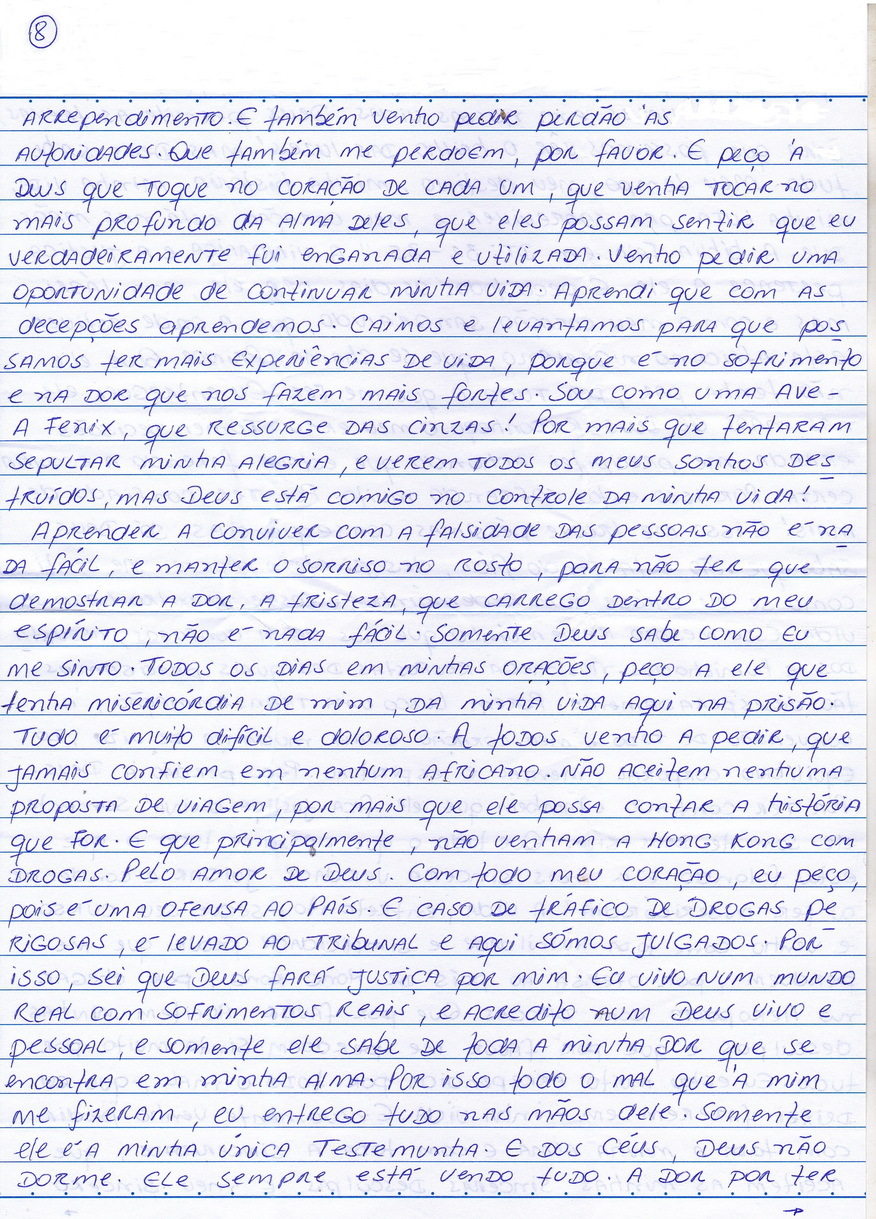 8
ARRependimento. E também venho pedir perdão 'as
Autoridades. Que também me perdoem, por favor. E peço 'a
Deus que toque no coração de cada um, que venha tocar no
mais profundo da alma deles, que eles possam sentir que eu
verdadeiramente fui enganada e utilizada. Venho pedir uma
oportunidade de continuar minha vida. Aprendi que com as
decepções aprendemos. Caimos e levantamos para que pos
samos ter mais experiências de vida, porque é no sofrimento
e na dor que nos fazem mais fortes. Sou como uma Ave-
A Fenix, que ressurge das cinzas! Por mais que tentaram
sepultar minha alegria, e verem todos os meus sonhos des
truídos, mas Deus está comigo no controle da minha vida!
Aprender a conviver com a falsidade das pessoas não é na
da fácil, e manter o sorriso no rosto, para não ter que
demostrar a dor, a tristeza, que carrego dentro do meu
espírito, não é nada fácil. Somente Deus sabe como eu
me sinto. Todos os dias em minhas orações, peço a ele que
tenha misericórdia de mim, da minha vida aqui na prisão.
Tudo é muito difícil e doloroso. A todos venho a pedir, que
jamais confiem em nenhum africano. Não aceitem nenhuma
proposta de viagem, por mais que ele possa contar a história
que for. E que principalmente, não venham a Hong Kong com
drogas. Pelo amor de Deus. Com todo meu coração, eu peço,
pois é uma ofensa ao país. E caso de tráfico de drogas pe
rigosas, é levado ao tribunal e aqui sómos julgados. Por
isso, sei que Deus fará justiça por mim. Eu vivo num mundo
real com sofrimentos reais, e acredito num Deus vivo e
pessoal, e somente ele sabe de toda a minha dor que se
encontra em minha alma. Por isso todo o mal que 'a mim
me fizeram, eu entrego tudo nas mãos dele. Somente
ele é a minha única testemunha. E dos céus, Deus não
dorme. Ele sempre está vendo tudo. A dor por ter